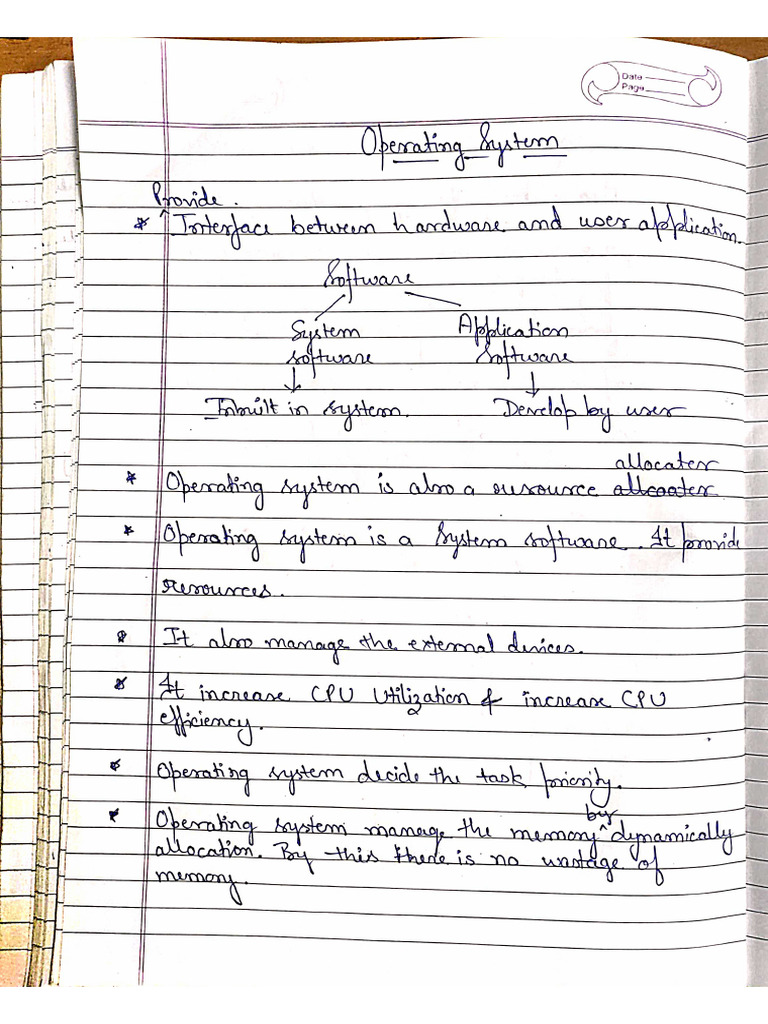 Date
Page
Operating System
Provide.
* ^ Interface between hardware and user application.
Software
System Application
software Software
Inbuilt in system. Develop by user
allocater
* Operating system is also a resource
* Operating system is a System software. It provide
resources.
* It also manage the external devices.
* It increase CPU Utilization & increase CPU
efficiency.
* Operating system decide the task priority.
by
* Operating system manage the memory ^ dynamically
allocation. By this there is no wastage of
memory.